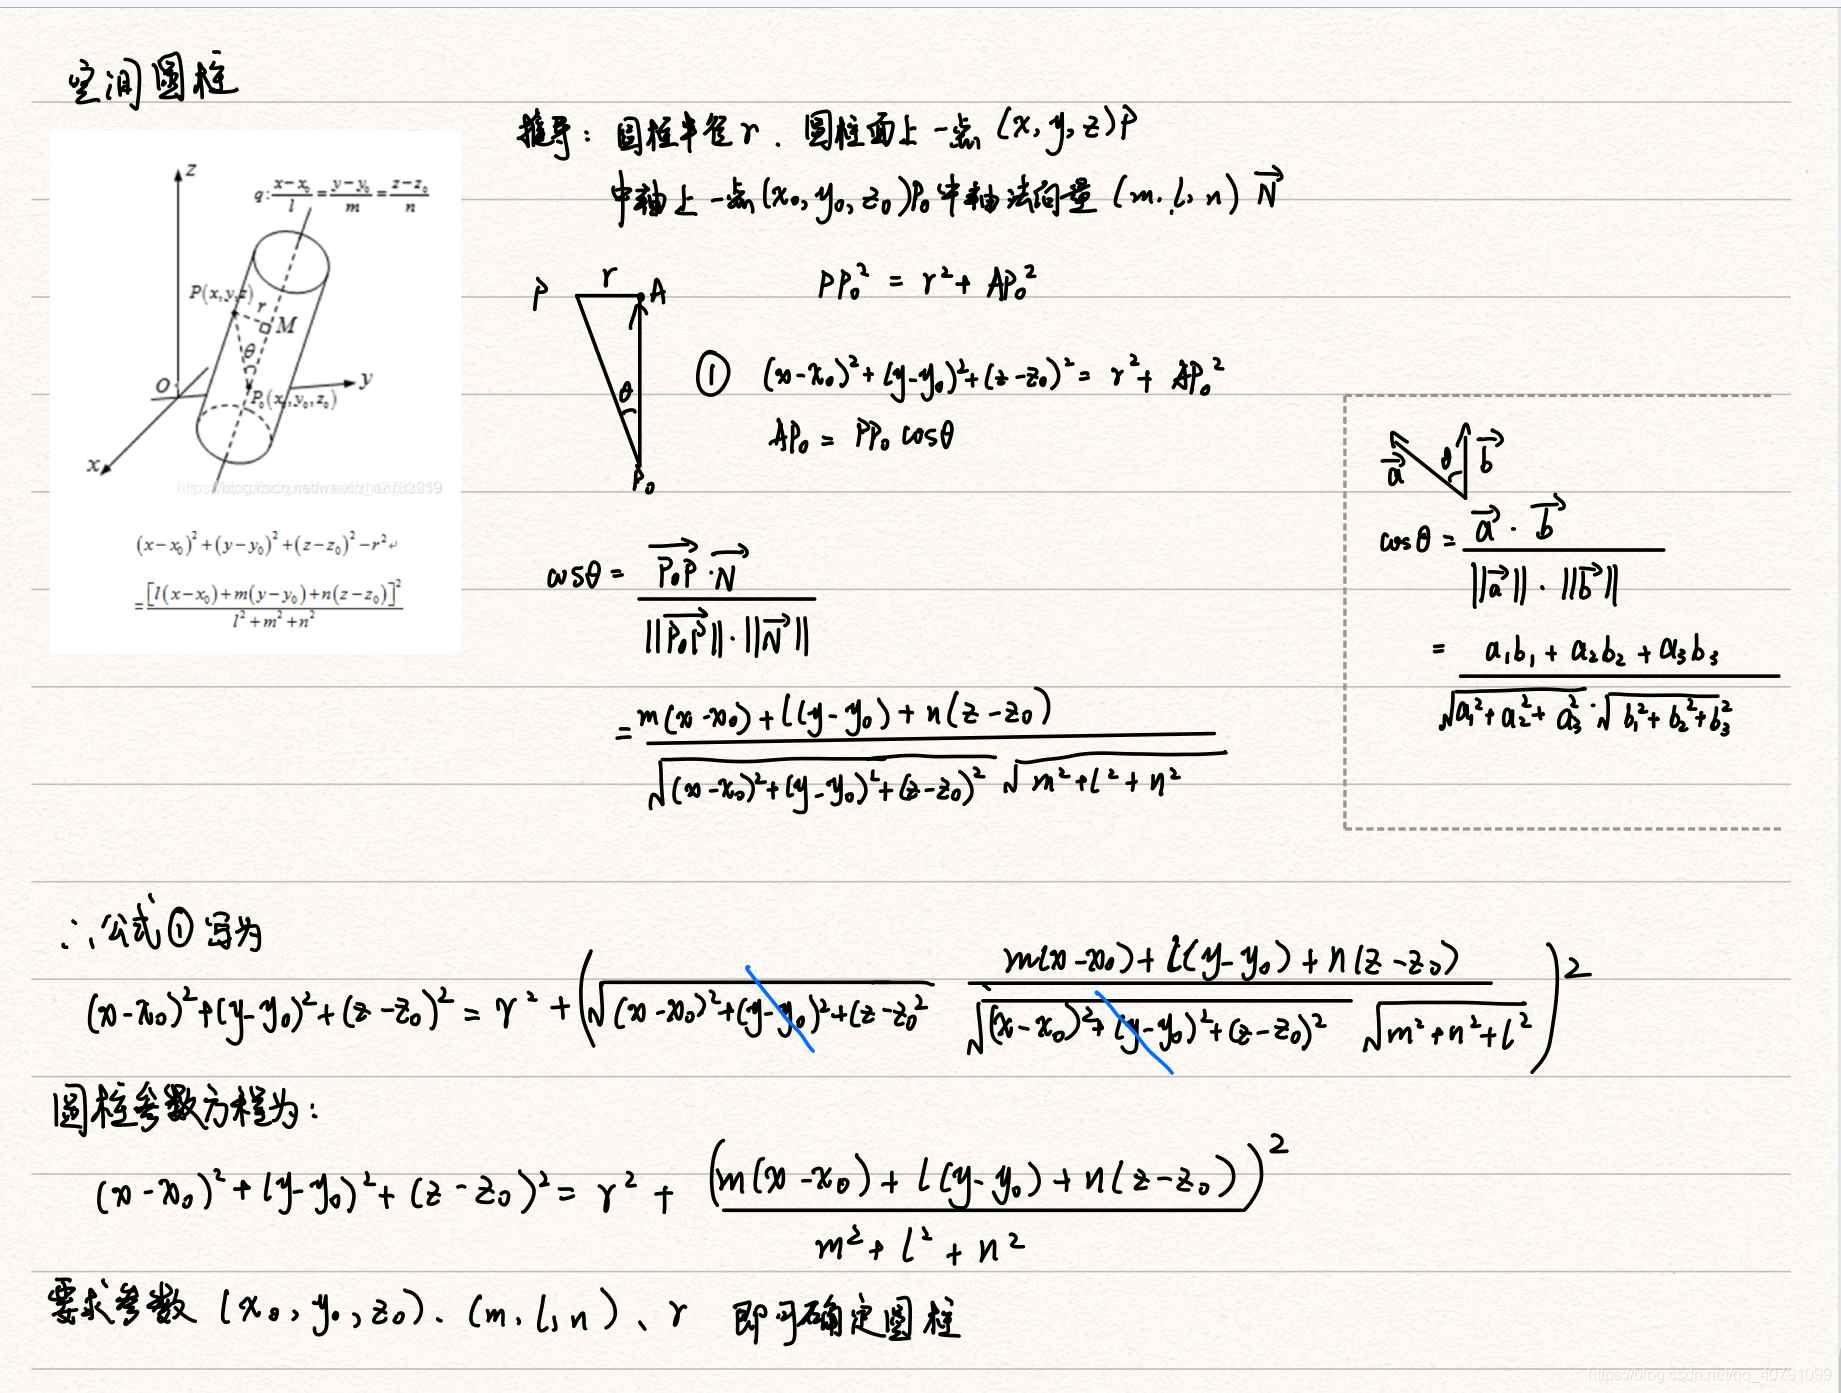 空间圆柱
z
q: (x-x₀)/l = (y-y₀)/m = (z-z₀)/n
P(x,y,z)
r
M
θ
O
y
P₀(x₀,y₀,z₀)
x
(x-x₀)²+(y-y₀)²+(z-z₀)²-r²↵
=[l(x-x₀)+m(y-y₀)+n(z-z₀)]²/(l²+m²+n²)
推导: 圆柱半径 r. 圆柱面上一点 (x, y, z) P
中轴上一点 (x₀, y₀, z₀) P₀ 中轴法向量 (m. l, n) N⃗
P r A
θ
P₀
PP₀² = r² + AP₀²
① (x-x₀)²+(y-y₀)²+(z-z₀)² = r² + AP₀²
AP₀ = PP₀ cosθ
cosθ = (P₀P⃗ · N⃗) / (||P₀P⃗|| · ||N⃗||)
= (m(x-x₀)+l(y-y₀)+n(z-z₀)) / (√((x-x₀)²+(y-y₀)²+(z-z₀)²) √(m²+l²+n²))
a⃗ θ b⃗
cosθ = (a⃗ · b⃗) / (||a⃗|| · ||b⃗||)
= (a₁b₁ + a₂b₂ + a₃b₃) / (√(a₁²+a₂²+a₃²) · √(b₁²+b₂²+b₃²))
∴ 公式① 写为
(x-x₀)²+(y-y₀)²+(z-z₀)² = r² + (√((x-x₀)²+(y-y₀)²+(z-z₀²) (m(x-x₀)+l(y-y₀)+n(z-z₀)) / (√((x-x₀)²+(y-y₀)²+(z-z₀)²) √(m²+n²+l²)))²
圆柱参数方程为:
(x-x₀)²+(y-y₀)²+(z-z₀)² = r² + (m(x-x₀)+l(y-y₀)+n(z-z₀))² / (m²+l²+n²)
要求参数 (x₀, y₀, z₀)、(m, l, n)、r 即可确定圆柱
https://blog.csdn.net/qq_40791099